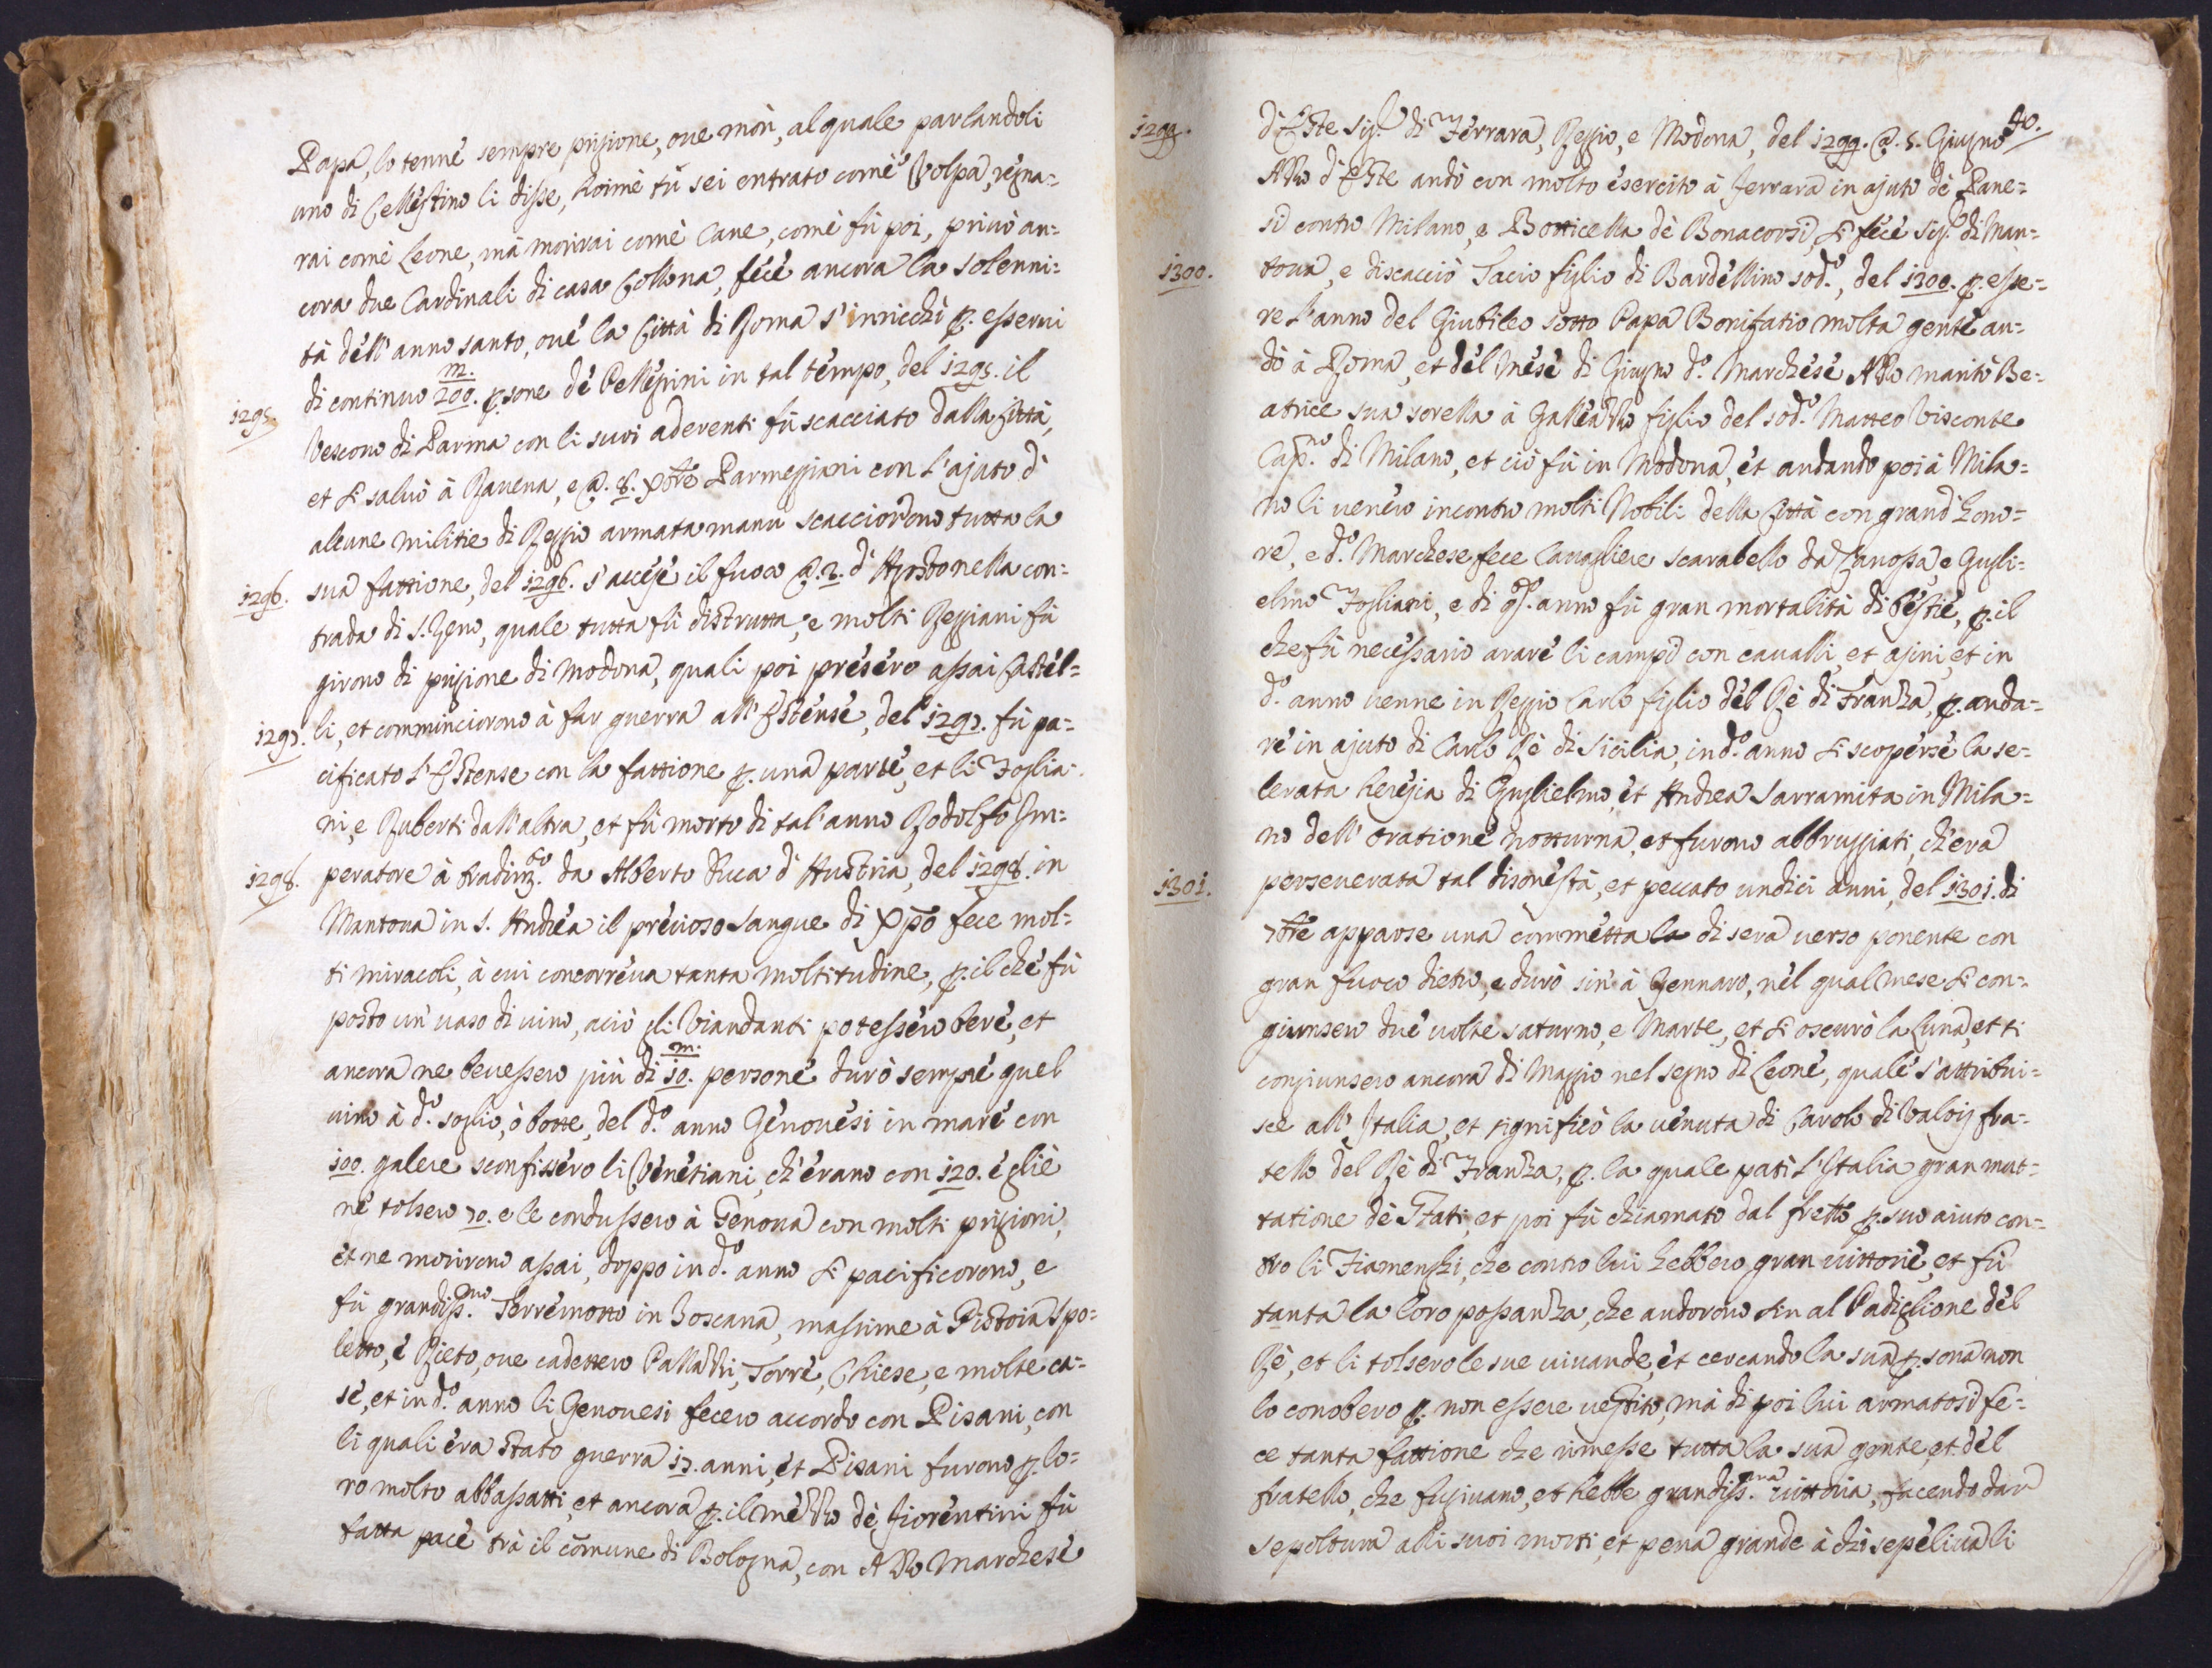 Papa, lo tenne sempre prigione, oue morì, al quale parlandoli
uno di Cellestino li disse, hoimè tù sei entrato come Volpa, regna-
rai come Leone, mà morirai come Cane, come fù poi, priuò an-
cora due Cardinali di casa Collona, fece ancora la solenni-
tà dell'anno santo, oue la Città di Roma s'inricchì p. esserui
di continuo 200.m. psone de Pellegrini in tal tempo, del 1295. il
1295.
Vescouo di Parma con li suoi aderenti fù scacciato dalla Città,
et si saluò à Rauena, e @. 8. xbre Parmeggiani con l'ajuto d'
alcune militie di Reggio armata manu scacciorono tutta la
1296. sua fattione, del 1296. s'accese il fuoco @. 2. d'Agosto nella con-
trada di S. Zeno, quale tutta fù distrutta, e molti Reggiani fù
girono di prigione di Modona, quali poi presero assai Castel-
1297. li, et comminciorono à far guerra all'Estense, del 1297. fù pa-
cificato l'Estense con la fattione p. una parte, et li Foglia-
ni, e Ruberti dall'altra, et fù morto di tal'anno Rodolfo Im-
1298. peratore à tradim.to da Alberto Duca d'Austria, del 1298. in
Mantoua in S. Andrea il precioso sangue di Xpo fece mol-
ti miracoli, à cui concorreua tanta moltitudine, p. il che fù
posto un'uaso di uino, aciò gli Viandanti potessero bere, et
ancora ne beuessero più di 10.m. persone durò sempre quel
uino à d.o soglio, ò botte, del d.o anno Genouesi in mare con
100. galere sconfissero li Venetiani, ch'erano con 120. e gliè
ne tolsero 70. e le condussero à Genoua con molti prigioni,
et ne morirono assai, doppo in d.o anno si pacificorono, e
fù grandiss.mo Terremotto in Toscana, massime à Pistoia Spo-
letto, e Rieto, oue cadettero Pallazzi, Torre, Chiese, e molte ca-
se, et in d.o anno li Genouesi fecero accordo con Pisani, con
li quali era stato guerra 17. anni, et Pisani furono p. lo-
ro molto abbassatti, et ancora p. il mezzo de Fiorentini fù
fatta pace trà il comune di Bologna, con Azzo Marchese
40.
1299. d'Este Sig.r di Ferrara, Reggio, e Modona, del 1299. @. 5. Giugno
Azzo d'Este andò con molto esercito à Ferrara in ajuto de Pane-
si contro Milano, e Botticella de Bonacorsi, si fece Sig.r di Man-
1300. toua, e discacciò Tacio figlio di Bardellino sod.o, del 1300. p. esse-
re l'anno del Giubileo sotto Papa Bonifatio molta gente an-
dò à Roma, et del mese di Giugno d.o Marchese Azzo maritò Be-
atrice sua sorella à Galleazzo figlio del sod.o Matteo Visconte
Cap.no di Milano, et ciò fù in Modona, et andando poi à Mila-
no li uenero incontro molti Nobili della Città con grand'hono-
re, e d.o Marchese fece Cauagliere Scarabello da Canossa, e Gugli-
elmo Fogliani, e di qst. anno fù gran mortalità di bestie, p. il
che fù necessario arare li campi con caualli, et asini, et in
d.o anno uenne in Reggio Carlo figlio del Rè di Franza, p. anda-
re in ajuto di Carlo Rè di Sicilia, in d.o anno si scoperse la sc-
lerata heregia di Guglielmo, et Andrea Sarramita in Mila-
no dell'oratione notturna, et furono abbruggiati, ch'era
1301. perseuerata tal disonestà, et peccato undici anni, del 1301. di
7bre apparse una commetta di sera uerso ponente con
gran fuoco dietro, e durò sin'à Gennaro, nel qual mese si con-
giunsero due uolte Saturno, e Marte, et si oscurò la Luna, et si
congiunsero ancora di Maggio nel segno di Leone, quale s'attribui-
sce all'Italia, et significò la uenuta di Carolo di Valois fra-
tello del Rè di Franza, p. la quale patì l'Italia gran mut-
tatione de Stati, et poi fù chiamato dal frello p. suo aiuto con-
tro li Fiamenghi, che contro lui hebbero gran uittorie, et fù
tanta la loro possanza, che andorono sin al Padiglione del
Rè, et li tolsero le sue uiuande, et cercando la sua p.sona non
lo conobero p. non essere uestito, mà di poi lui armatosi fe-
ce tanta fattione che rimesse tutta la sua gente, et del
fratello, che fugiuano, et hebbe grandiss.ma uittoria, facendo dar
sepoltura alli suoi morti, et pena grande à chi sepeliua li